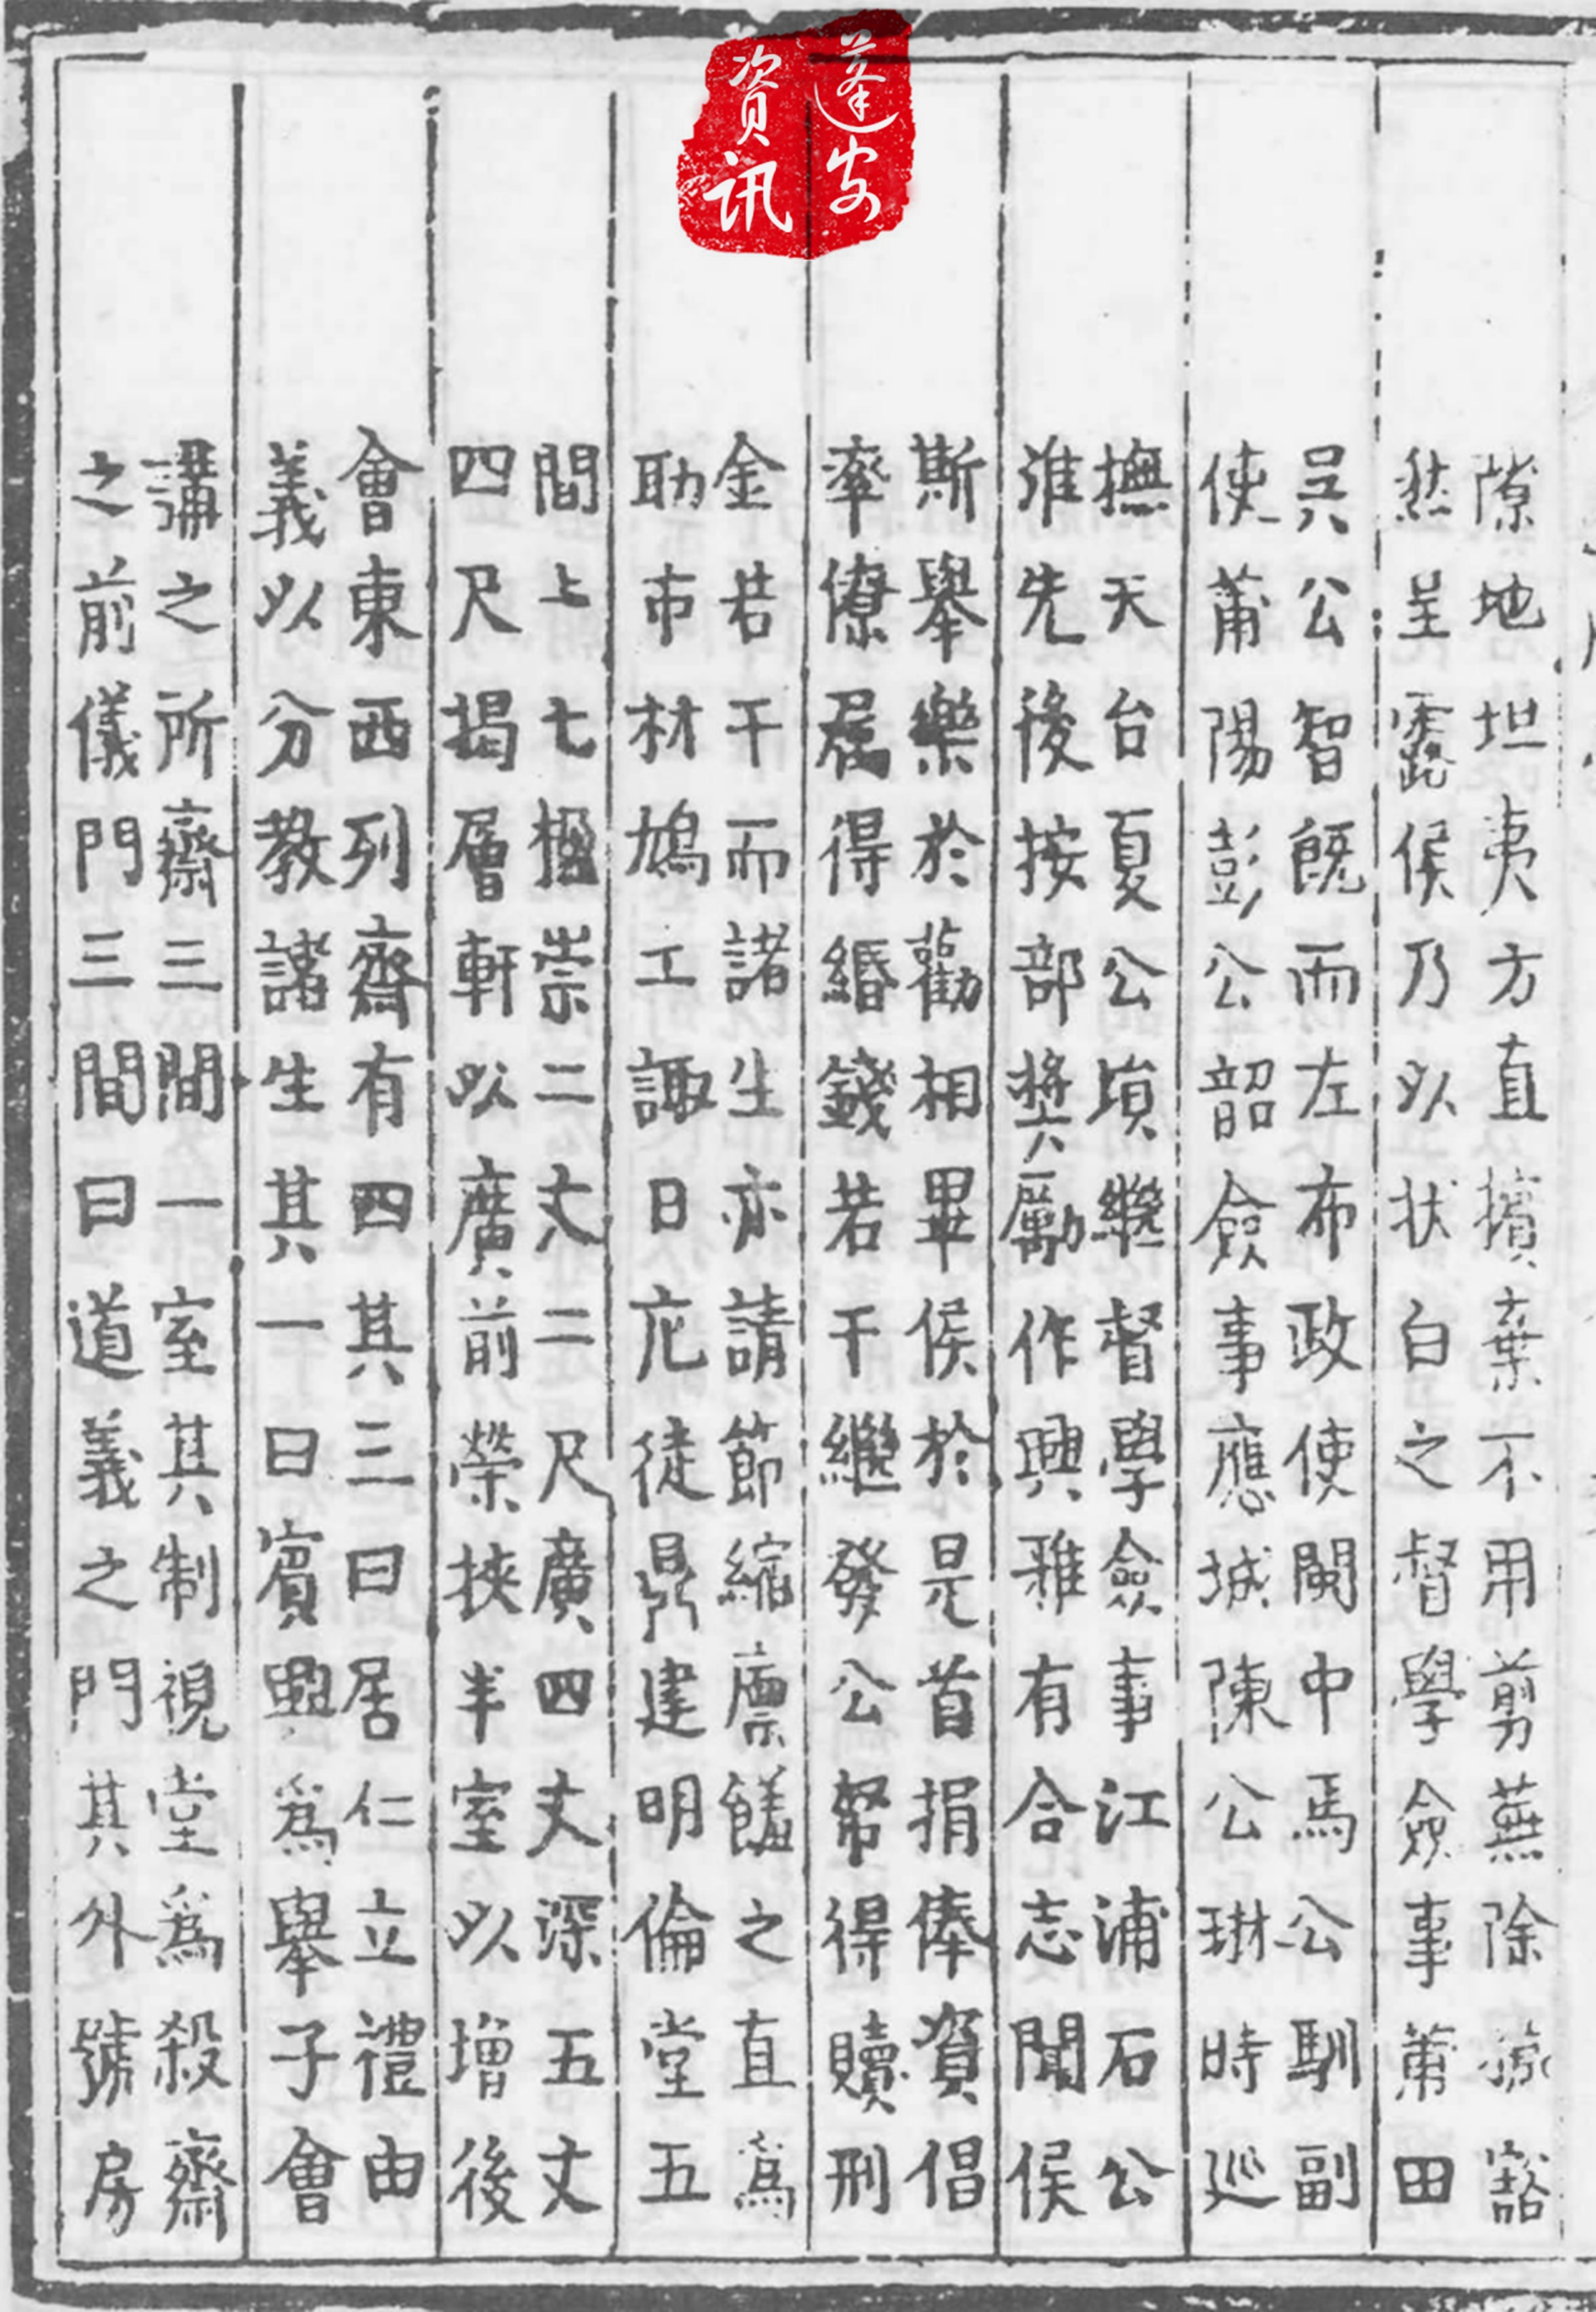 蓬安
資訊
隙地坦夷方直擯棄不用剪蕪除豁
然呈露侯乃以狀白之督學僉事莆田
吳公智既而左布政使閩中馬公馴副
使莆陽彭公韶僉事應城陳公琳時巡
撫天台夏公塤繼督學僉事江浦石公
淮先後按部獎勵作興雅有合志聞侯
斯舉樂於勸相畢侯於是首捐俸資倡
率僚屬得緡錢若干繼發公帑得贖刑
金若干而諸生亦請節縮廩饎之直為
助市材鳩工諏日庀徒鼎建明倫堂五
間上七楹崇二丈二尺廣四丈深五丈
四尺揭層軒以廣前榮挾半室以增後
會東西列齋有四其三曰居仁立禮由
義以分教諸生其一曰賓興為舉子會
講之所齋三間一室其制視堂為殺齋
之前儀門三間曰道義之門其外號房